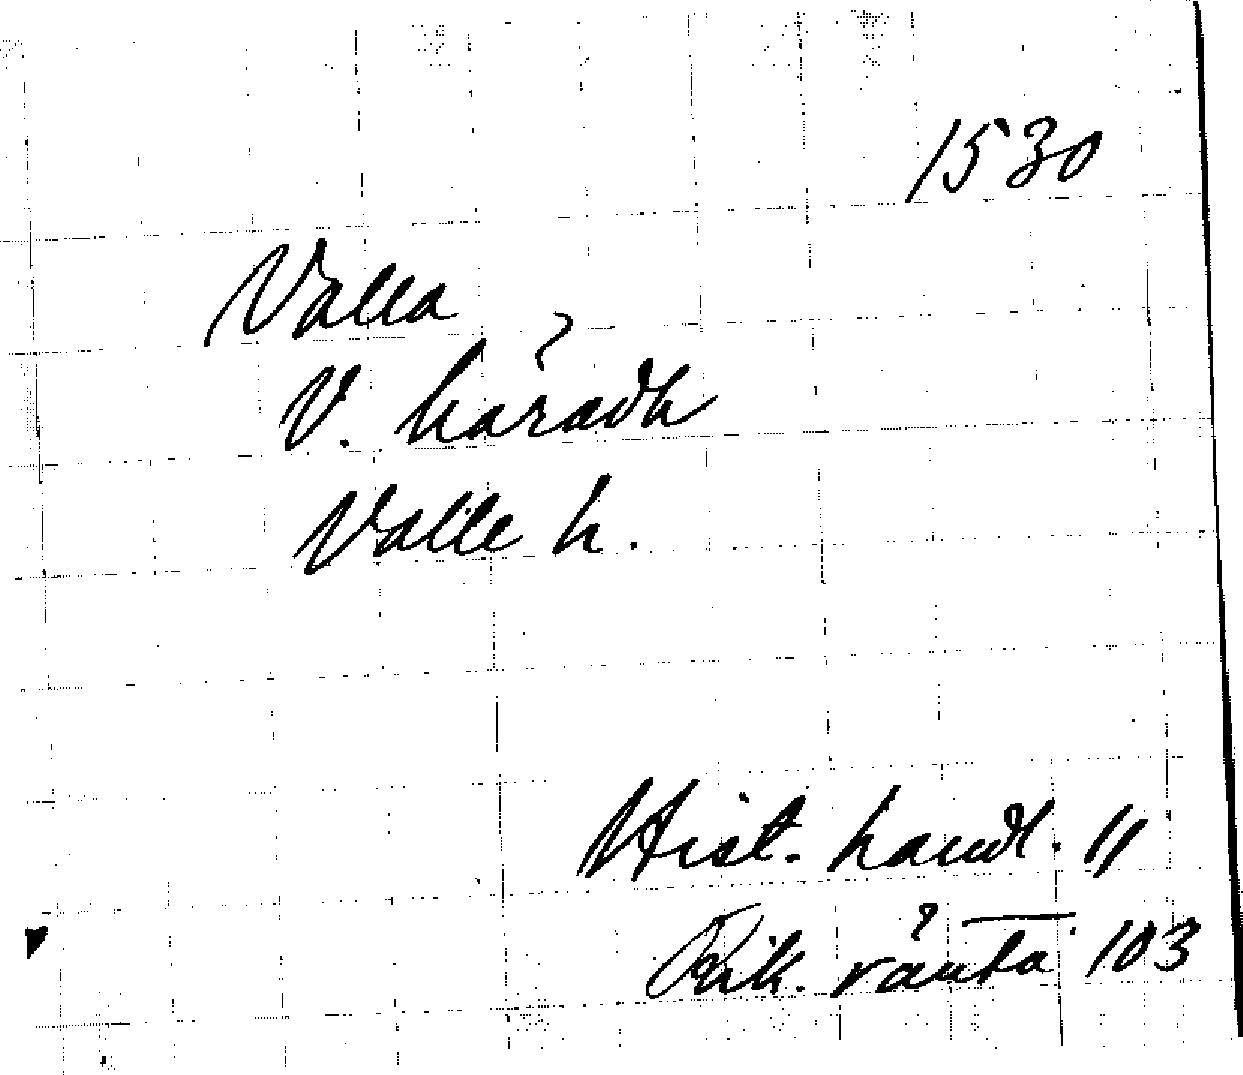 1530
Valla
V. häradh
Valle h.
Hist. handl. 11
Rik. ränta 103